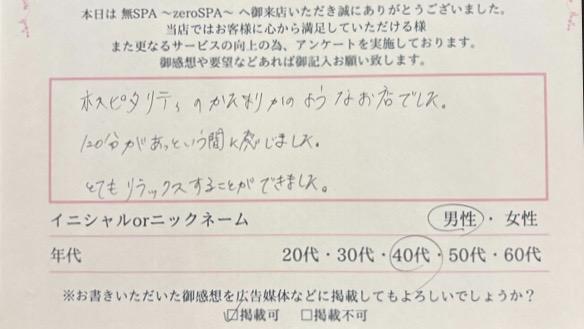 本日は 無SPA 〜zeroSPA〜 へ御来店いただき誠にありがとうございました。
当店ではお客様に心から満足していただける様
また更なるサービスの向上の為、アンケートを実施しております。
御感想や要望などあれば御記入お願い致します。
ホスピタリティのかたまりかのようなお店でした。
120分があっという間に感じました。
とてもリラックスすることができました。
イニシャルorニックネーム 男性・女性
年代 20代・30代・40代・50代・60代
※お書きいただいた御感想を広告媒体などに掲載してもよろしいでしょうか？
☑掲載可 □掲載不可